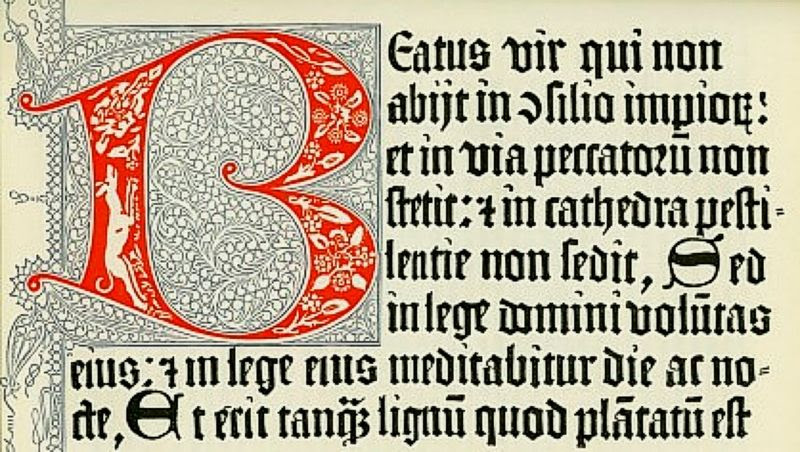 BEatus vir qui non
abijt in ↄsilio impioꝝ:
et in via peccatorū non
stetit: ⁊ in cathedra pesti-
lentie non sedit, Sed
in lege domini volūtas
eius: ⁊ in lege eius meditabitur die ac no-
cte, Et erit tanqᷓ lignū quod plātatū est